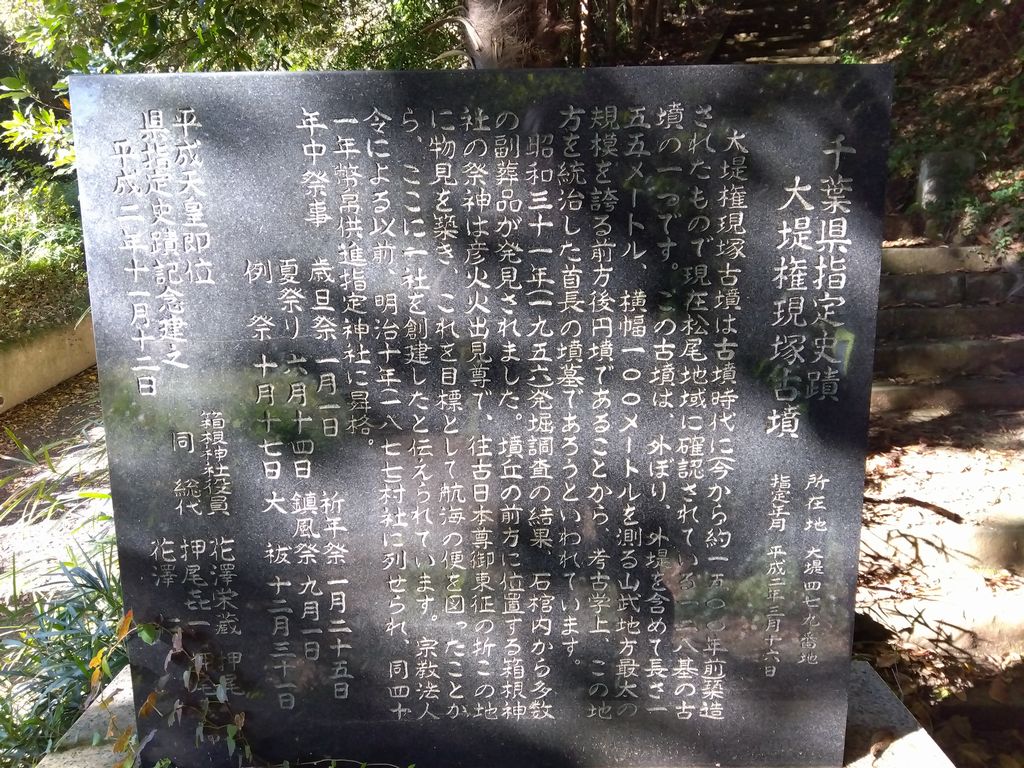 千葉県指定史蹟
大堤権現塚古墳
所在地 大堤四七九番地
指定年月 平成二年三月十六日
大堤権現塚古墳は古墳時代に今から約一五〇〇年前築造
されたもので現在松尾地域に確認されている一二八基の古
墳の一つです。この古墳は、外ぼり、外堤を含めて長さ一
五五メートル、横幅一〇〇メートルを測る山武地方最大の
規模を誇る前方後円墳であることから、考古学上、この地
方を統治した首長の墳墓であろうといわれています。
昭和三十一年一九五六発掘調査の結果、石棺内から多数
の副葬品が発見されました。墳丘の前方に位置する箱根神
社の祭神は彦火火出見尊で、往古日本尊御東征の折この地
に物見を築き、これを目標として航海の便を図ったことか
ら、ここに一社を創建したと伝えられています。宗教法人
令による以前、明治十年一八七七村社に列せられ、同四十
一年幣帛供進指定神社に昇格。
年中祭事 歳旦祭 一月一日 祈年祭 一月二十五日
夏祭り 六月十四日 鎮風祭 九月一日
例祭 十月十七日 大祓 十二月三十一日
平成天皇即位
県指定史蹟記念建之
平成二年十一月十二日
箱根神社役員 花澤栄蔵 押尾
同 総代 押尾㐂一
花澤